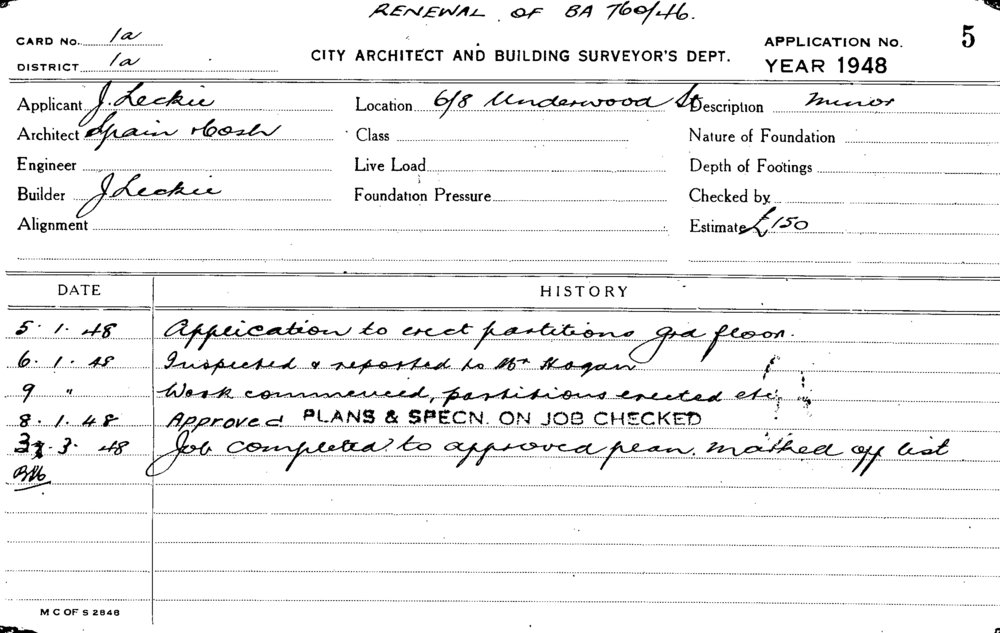 RENEWAL OF BA 760/46.
CARD No. 1a
DISTRICT 1a
CITY ARCHITECT AND BUILDING SURVEYOR'S DEPT.
APPLICATION No. 5
YEAR 1948
Applicant J. Leckie Location 6/8 Underwood St Description minor
Architect Spain & Cosh Class Nature of Foundation
Engineer Live Load Depth of Footings
Builder J Leckie Foundation Pressure Checked by
Alignment Estimate £150
DATE HISTORY
5. 1. 48 Application to erect partitions grd floor.
6. 1. 48 Inspected & reported to Mr Hogan
9 " Work commenced, partitions erected etc
8. 1. 48 Approved PLANS & SPECN. ON JOB CHECKED
3. 48 Job completed to approved plan. marked off list
M C OF S 2848